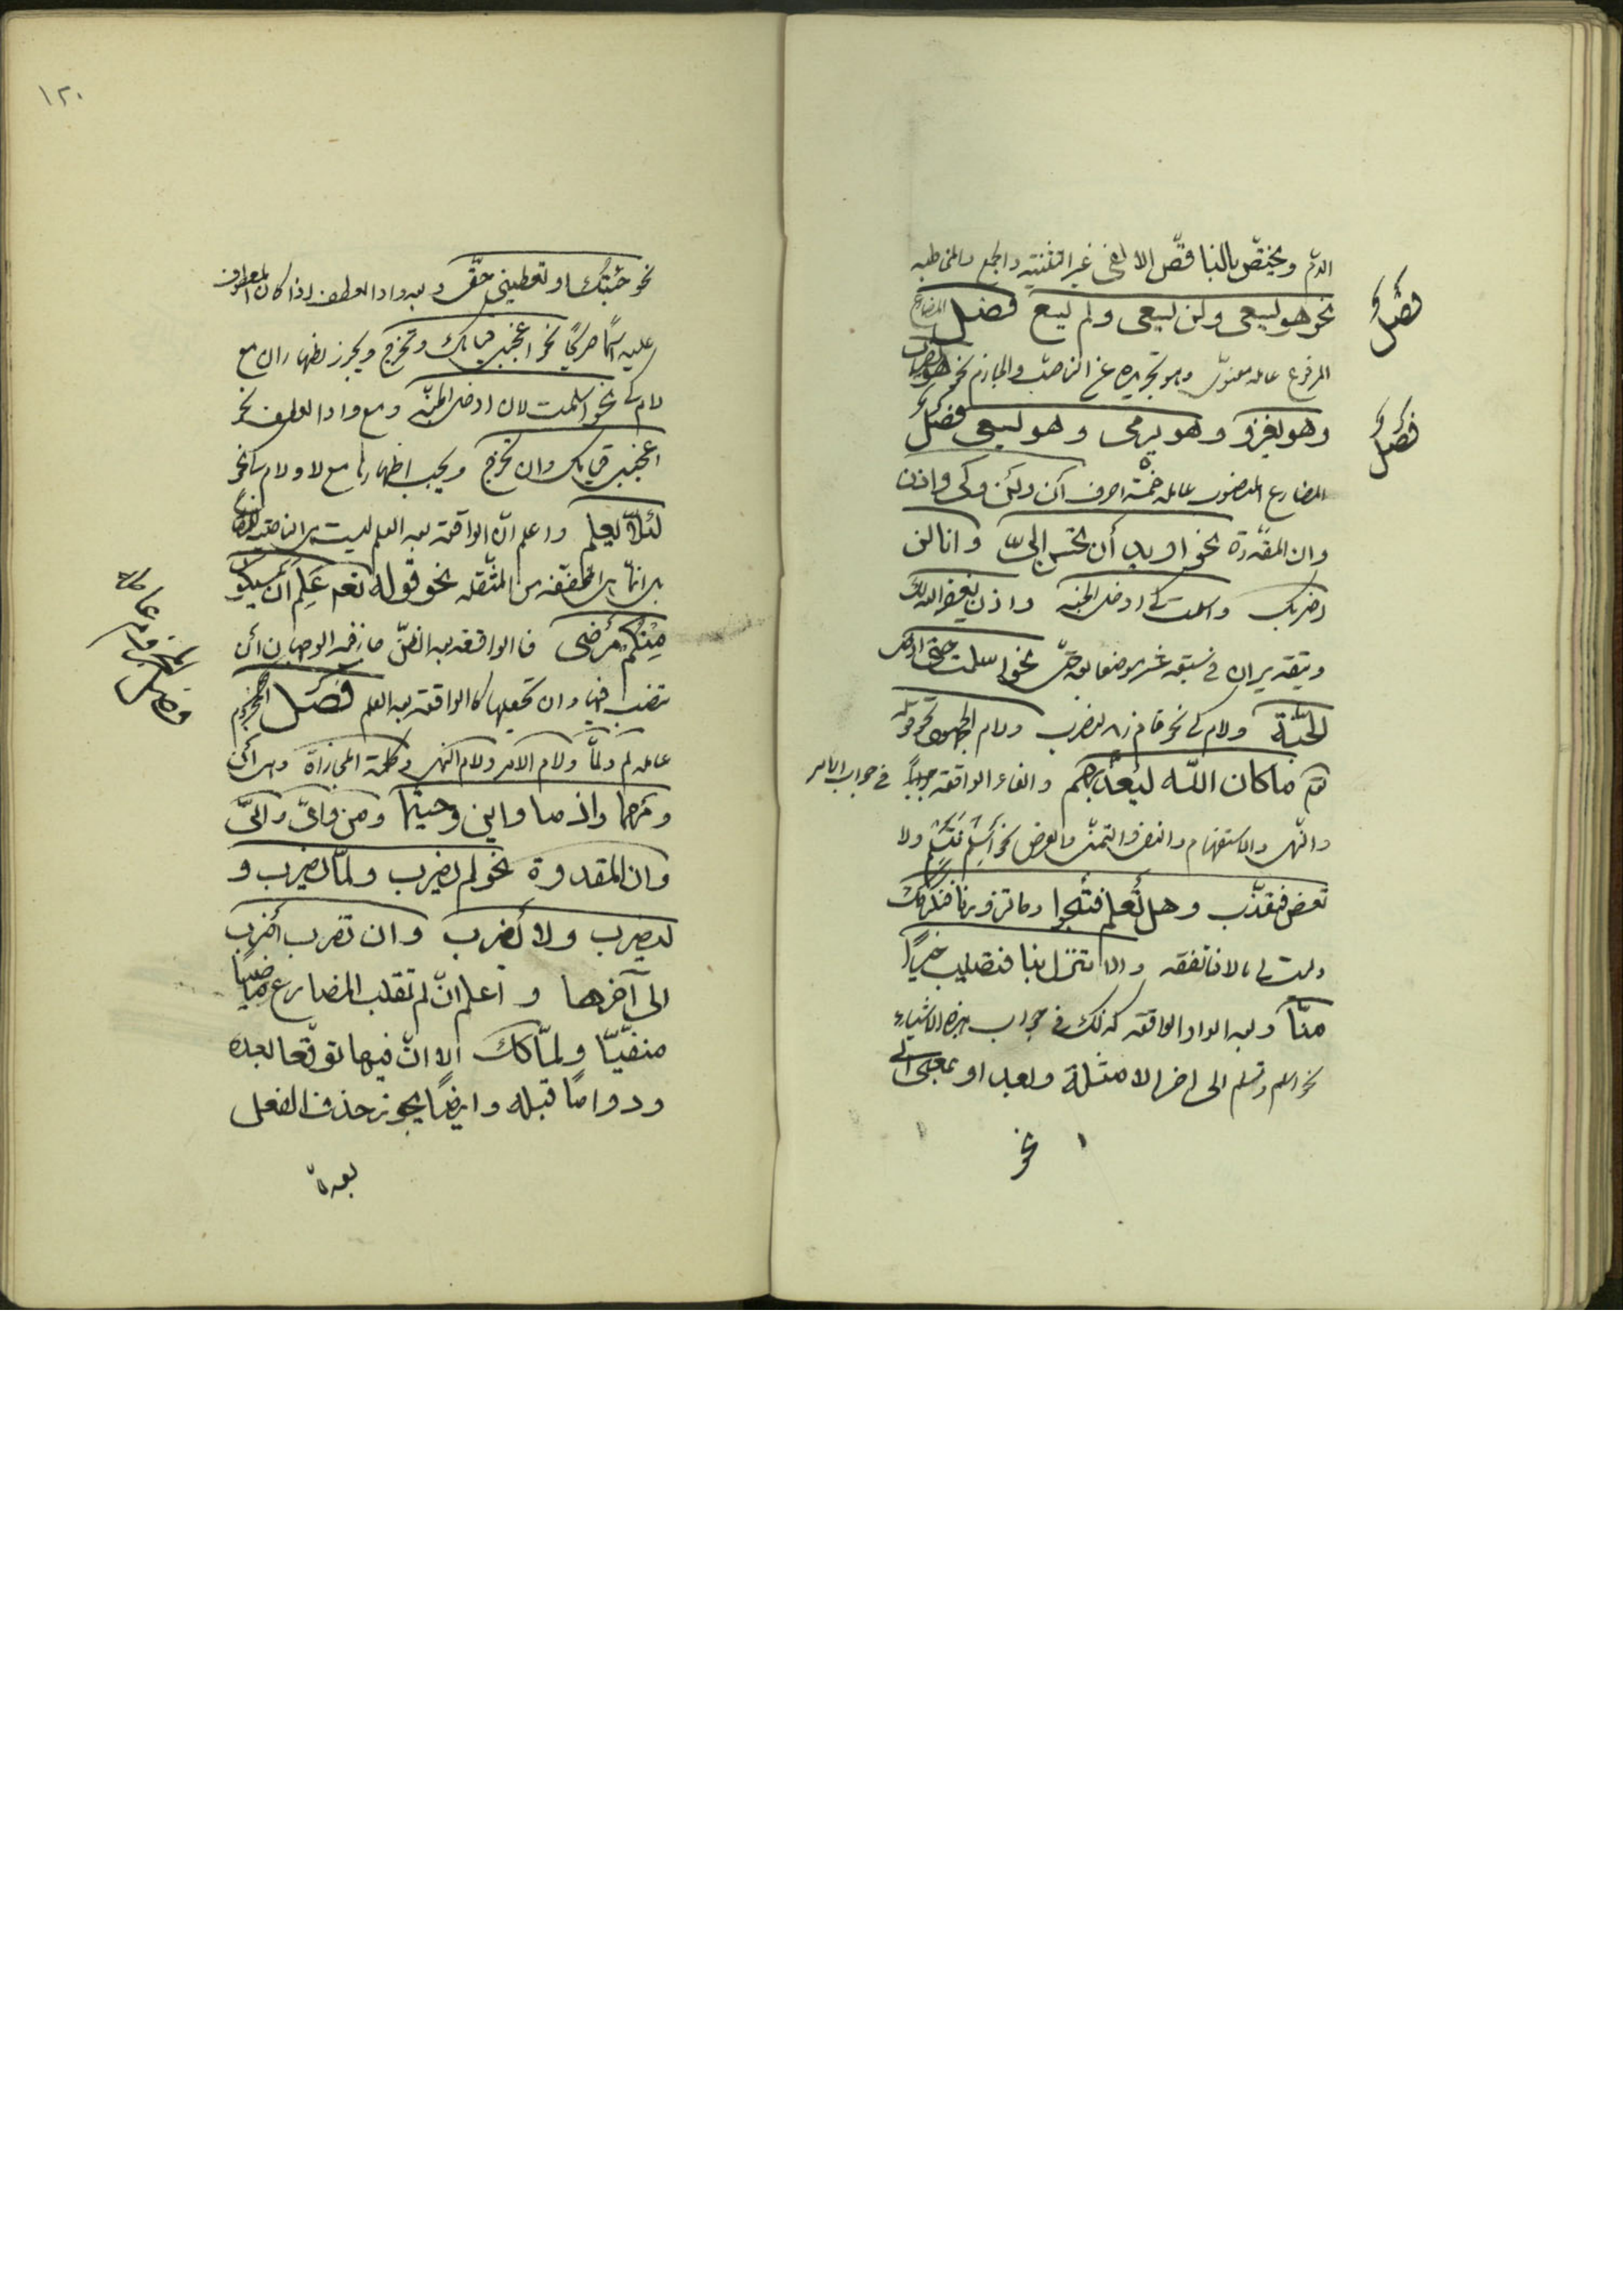 اللام ويختص بالناقص الالفى غير التثنية والجمع والمخاطبة
نحو هو يسعى ولن يسعى ولم يسع فصل المضارع
فصل
المرفوع عامله معنوىّ وهو تجريده عن الناصب والجازم نحو هو يضرب
وهو يغزو وهو يرمى وهو يسعى فصل
فصل
المضارع المنصوب عامله خمسة احرف أن ولن وكى واذن
وان المقدرة نحو اريد أن تحسن الىّ وانا لن
اضربك واسلمت كى ادخل الجنة واذن يغفر الله لك
وبتقدير ان فى سبعة عشر موضعا بعد حتّى نحو اسلمت حتى ادخل
الجنّة ولام كى نحو قام زيد ليضرب ولام الجهود نحو قوله
تع ما كان الله ليعذّبهم والفاء الواقعة جواباً فى جواب الامر
والنهى والاستفهام والنفى والتمنى والعرض نحو أَسلِمْ فَتَسْلَمَ ولا
تعص فتعذّب وهل تعلم فتنجوا وما تزورنا فنكرمك
وليت لى مالا فانفقه والا تنزل بنا فتصيب خيراً
منّا وبعد الواو الواقعة كذلك فى جواب هذه الاشياء
نحو اسلم وتسلم الى اخر الامثلة وبعد او بمعنى الى
نحو
١٢٠
نحو حبستك او تعطينى حقّى وبعد واو العطف اذا كان المعطوف
عليه اسمًا صريحًا نحو اعجبنى قيامك وتخرج ويجوز اظهار ان مع
لام كى نحو اسلمت لان ادخل الجنّة ومع واو العطف نحو
اعجبنى قيامك وان تخرج ويجب اظهارها مع لا ولام كى نحو
لئلاّ يعلم واعلم انّ الواقعة بعد العلم ليست هى الناصبة للمضارع
بل انّما هى المخفّفة من المثقّلة نحو قوله تعم عَلِمَ أَن سيكون
مِنْكُم مَرْضَى فالواقعة بعد الظنّ جاز فيه الوجهان أن
تنصب فيها وان تجعلها كالواقعة بعد العلم فصل المجزوم
عامله لم ولمّا ولام الامر ولام النهى وكلمة المجازاة وهى أن
ومهما واذما واين وحيثما ومن واىّ وانّى
وان المقدرة نحو لم يضرب ولمّا يضرب و
ليضرب ولا تضرب وان تضرب أضرب
الى آخرها واعلم انّ لم تقلب المضارع ماضيًا
منفيًّا ولمّا كك الا انّ فيها توقّعا بعده
ودوامًا قبله وايضًا يجوز حذف الفعل
بعده